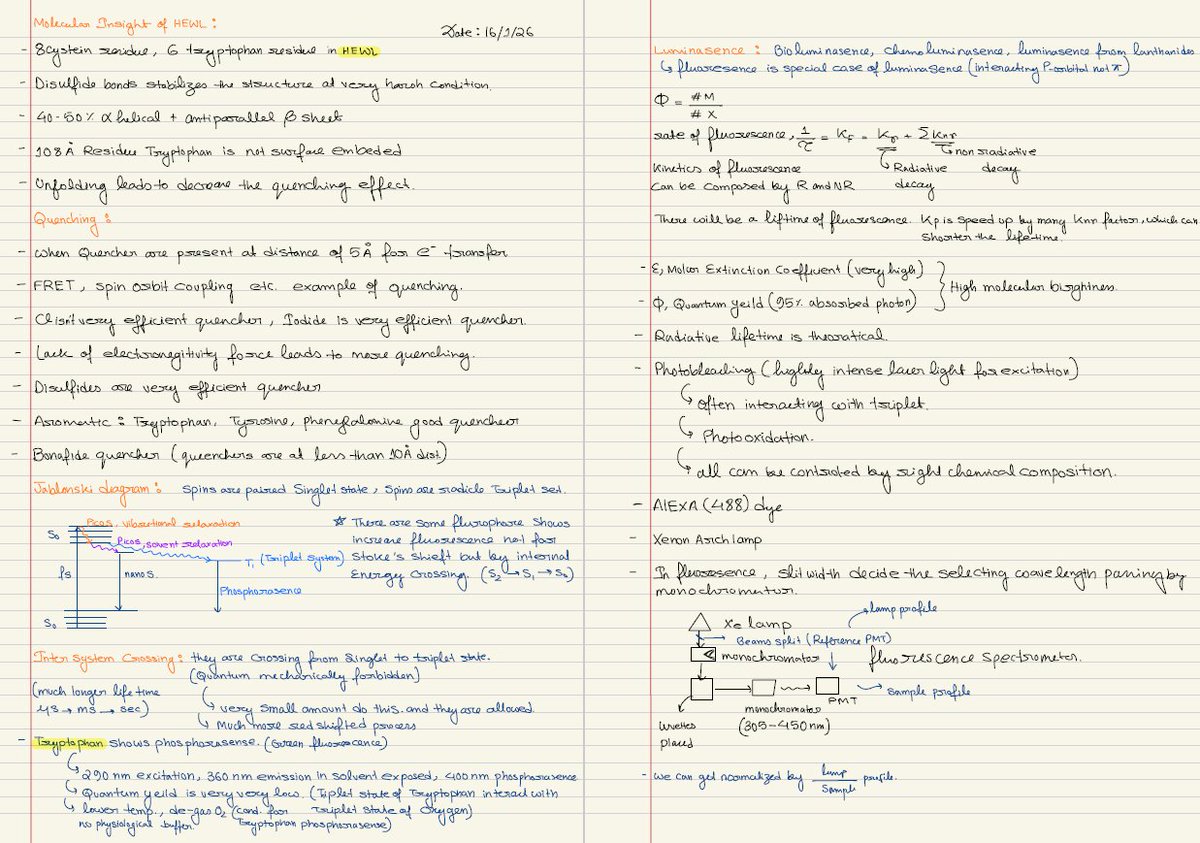 Molecular Insight of HEWL :
Date: 16/1/26
- 8 cystein residue, 6 tryptophan residue in HEWL
- Disulfide bonds stabilizes the structure at very harsh condition.
- 40-50% α helical + antiparallel β sheet
- 108 Å Residue Tryptophan is not surface embeded
- Unfolding leads to decrease the quenching effect.
Quenching :
- When Quencher are present at distance of 5Å for e⁻ transfer
- FRET, spin orbit coupling etc. example of quenching.
- Cl isn't very efficient quencher, Iodide is very efficient quencher.
- Lack of electronegitivity force leads to more quenching.
- Disulfides are very efficient quencher
- Aromatic : Tryptophan, Tyrosine, phenylalanine good quencher
- Bonafide quencher (quenchers are at less than 10Å dist.)
Jablonski diagram : Spins are paired Singlet state, Spins are radicle Triplet set.
Picos, vibrational relaxation
S₀
Picos, solvent relaxation
T₁ (Triplet System)
fs
nanos.
Phosphorasence
S₀
☆ There are some flurophore shows
increase fluorescence not for
Stoke's shieft but by internal
Energy Crossing (S₂ → S₁ → S₀)
Inter System Crossing : they are crossing from Singlet to triplet state.
(Quantum mechanically forbidden)
(much longer life time
µs → ms → sec)
↳ very small amount do this. and they are allowed
↳ Much more red shifted process
- Tryptophan shows phosphorasense. (Green fluorescence)
↳ 290 nm excitation, 360 nm emission in solvent exposed, 400 nm phosphorasence
↳ Quantum yeild is very very low. (Triplet state of Tryptophan interact with
↳ lower temp., de-gas O₂ (cond. for Triplet state of Oxygen)
no physiological buffer. Tryptophan phosphorasense)
Luminasence : Bioluminasence, chemoluminasence, luminasence from lanthanides
↳ fluoresence is special case of luminasence (interacting P-orbital not π)
Φ = #M / #X
rate of fluorescence, 1/τ = Kf = Kr + ΣKnr
↳ non radiative
decay
↳ Radiative
decay
Kinetics of fluorescence
can be composed by R and NR
There will be a liftime of fluorascence. Kp is speed up by many Knr factor, which can
shorter the life time.
- ε, Molar Extinction Coefficient (very high)
- Φ, Quantum yeild (95% absorbed photon)
High molecular birghtness.
- Radiative lifetime is theoratical.
- Photobleaching (highly intense laser light for excitation)
↳ Often interacting with triplet.
↳ Photooxidation.
↳ all can be controled by right chemical composition.
- AlEXA (488) dye
- Xenon Arch lamp
- In fluoresence, slit width decide the selecting wavelength passing by
monochromator.
Xe lamp
lamp profile
Beams split (Reference PMT)
monochromator
fluorescence spectrometer.
PMT
Sample profile
monochromator
(305-450 nm)
cuvettes
placed
- we can get normalized by lamp / Sample profile.